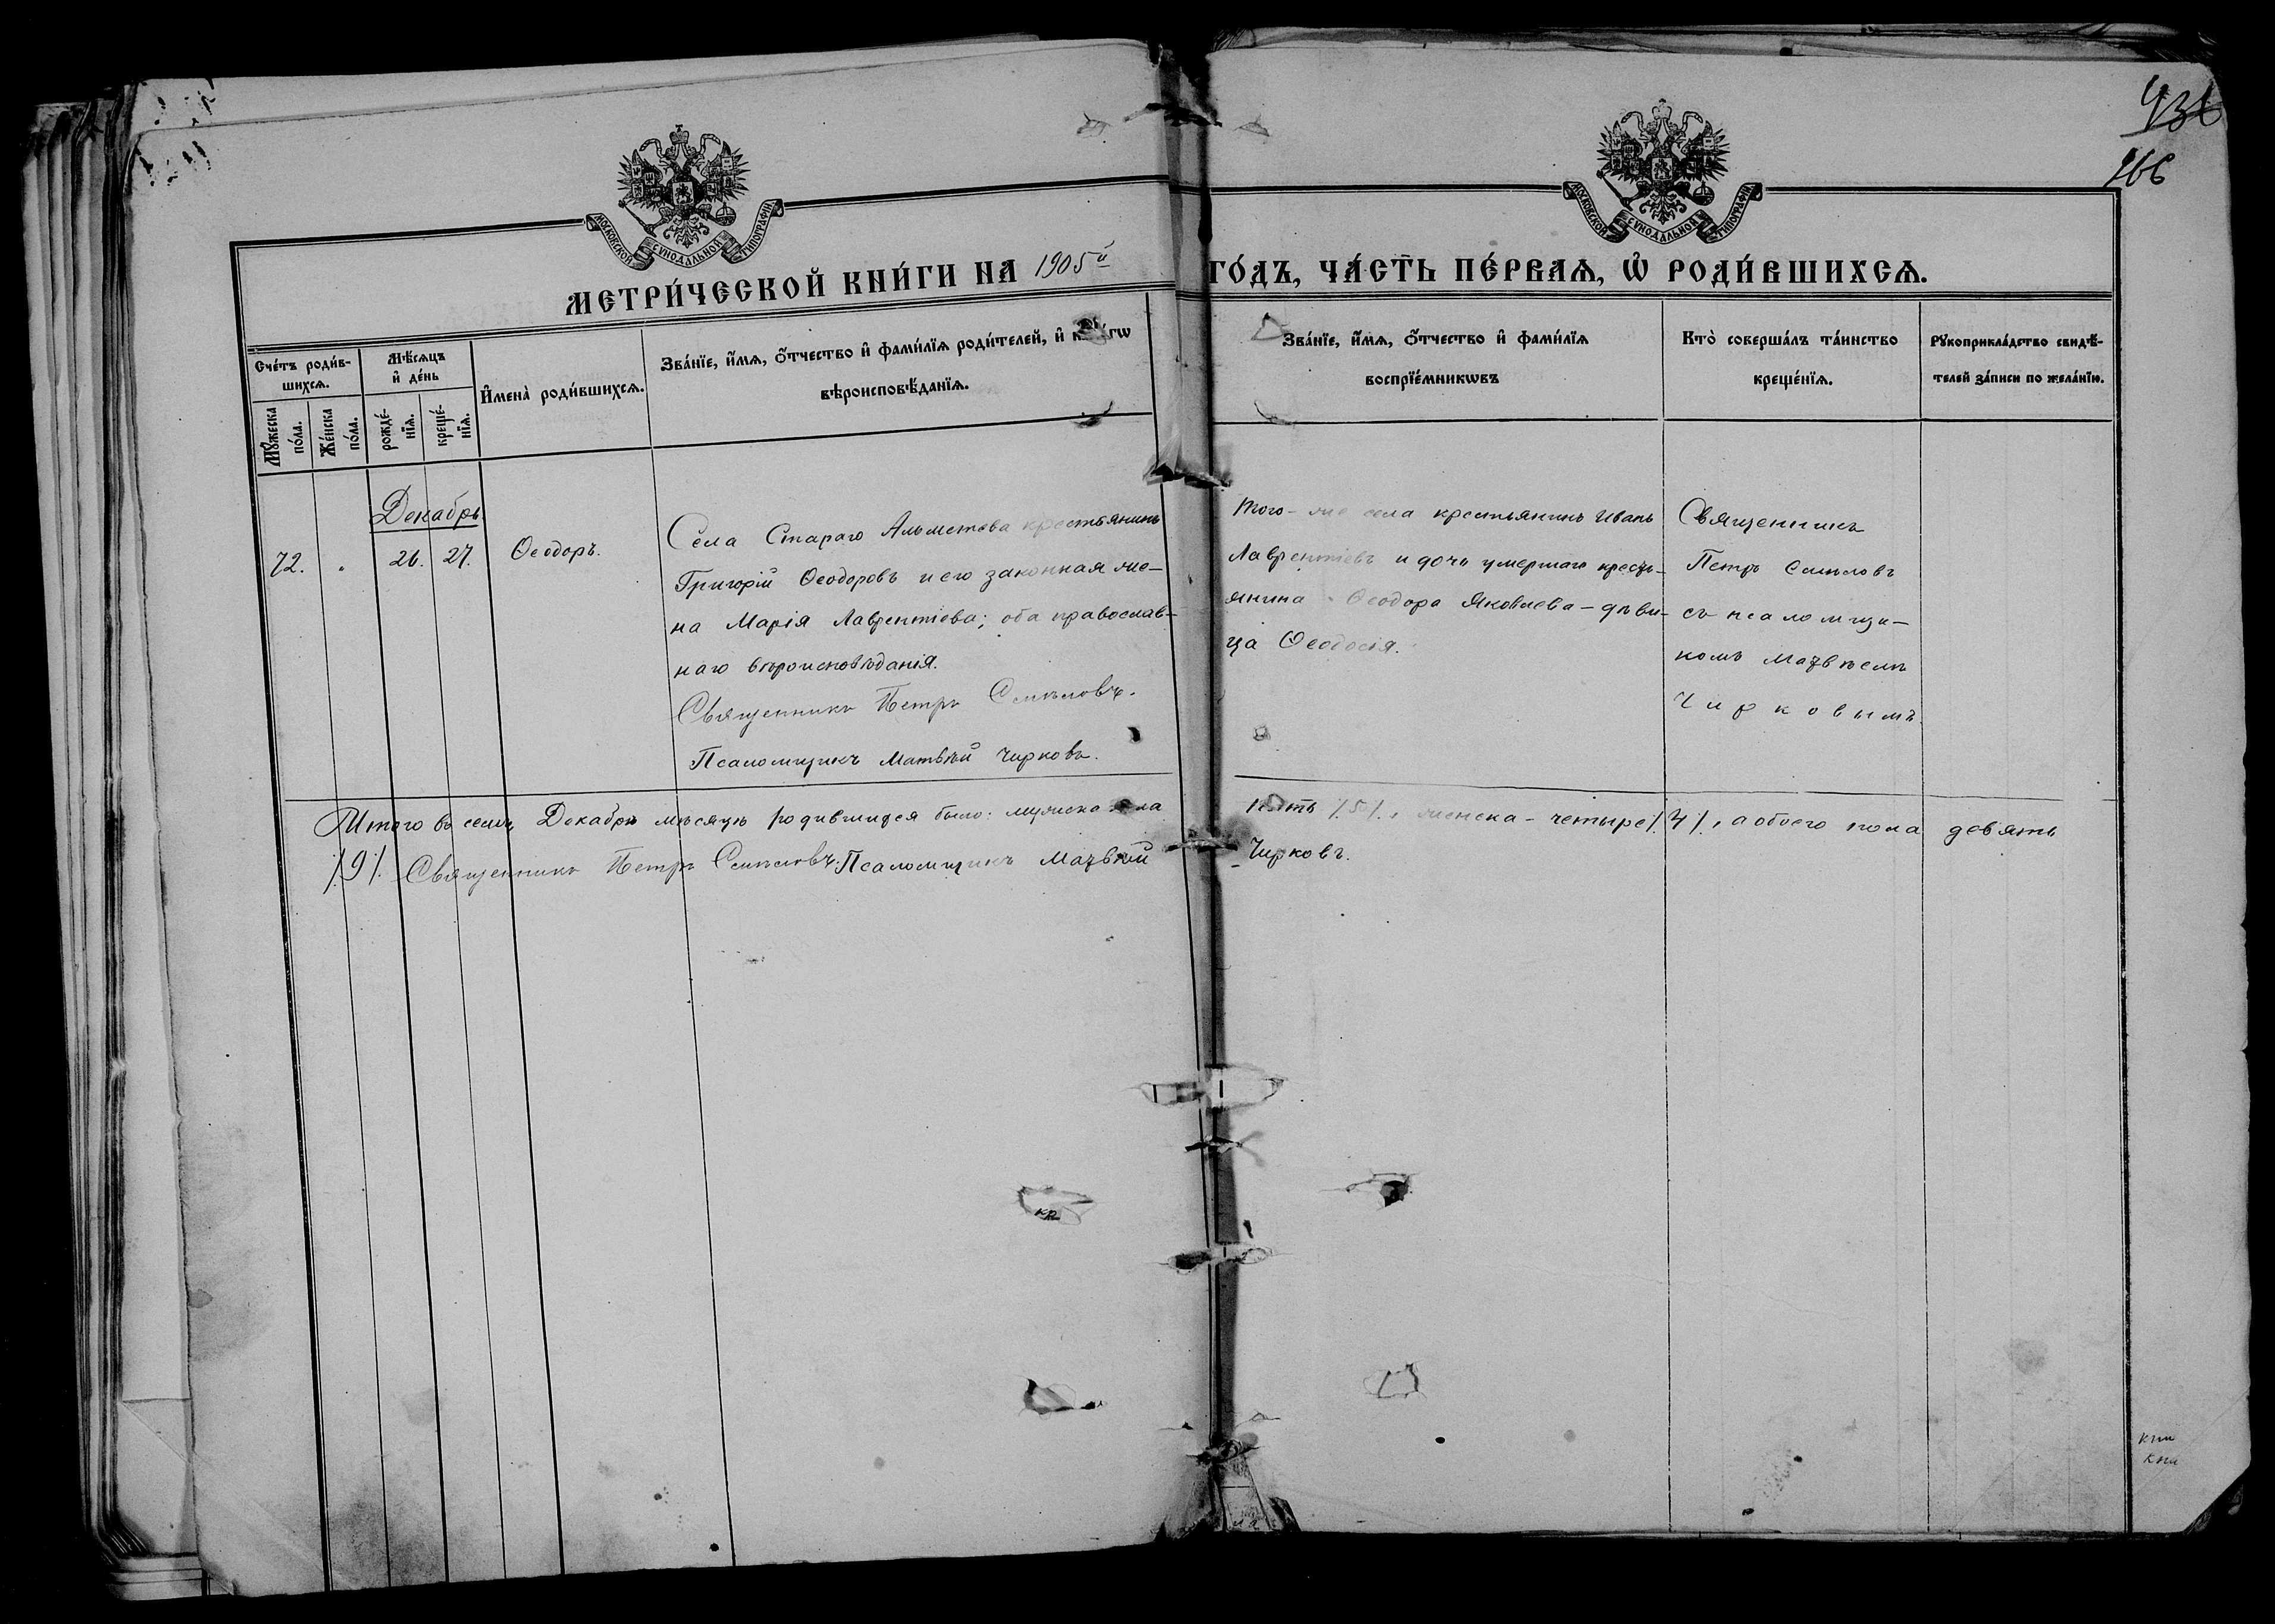 436
166
МОСКОВСКОЙ СѴНОДАЛЬНОЙ ТИПОГРАФІИ
МОСКОВСКОЙ СѴНОДАЛЬНОЙ ТИПОГРАФІИ
МЕТРИ́ЧЕСКОЙ КНИ́ГИ НА 1905й ГО́ДЪ, ЧА́СТЬ ПЕ́РВАѦ, Ѡ҆ РОДИ́ВШИХСѦ.
Сче́тъ роди́в-
шихсѧ.
Мꙋ́жеска
по́ла.
Же́нска
по́ла.
Мѣ́сѧцъ
и҆ де́нь
рожде́-
нїѧ.
креще́-
нїѧ.
И҆мена̀ роди́вшихсѧ.
Зва́нїе, и҆́мѧ, ѻ҆́тчество и҆ фами́лїѧ роди́телей, и҆
вѣроисповѣ́данїѧ.
Зва́нїе, и҆́мѧ, ѻ҆́тчество и҆ фами́лїѧ
воспрїе́мникѡвъ
Кто̀ соверша́лъ та́инство
креще́нїѧ.
Рꙋкоприкла́дство свидѣ́-
телей за́писи по жела́нїю.
Декабрь
72. „ 26. 27. Ѳеодоръ.
Села Стараго Альметева крестьянинъ
Григорій Ѳеодоровъ и его законная же-
на Марія Лаврентіева; оба православ-
наго вѣроисповѣданія.
Священникъ Петръ Смѣловъ.
Псаломщикъ Матвѣй Чирковъ.
Того-же села крестьянинъ Иванъ
Лаврентіевъ и дочь умершаго кресть-
янина Ѳеодора Яковлева – дѣви-
ца Ѳеодосія.
Священникъ
Петръ Смѣловъ
съ псаломщи-
комъ Матвѣемъ
Чирковымъ.
Итого въ семъ Декабрѣ мѣсяцѣ родившихся было: мужска пола пять /5/, женска – четыре /4/, а обоего пола девять
/9/. Священникъ Петръ Смѣловъ. Псаломщикъ Матвѣй Чирковъ.